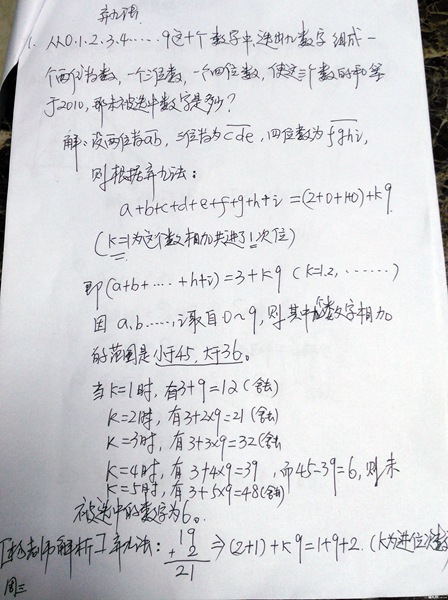 弃九法
1. 从0.1.2.3.4……9这十个数字中,选出九个数字组成一
个两位数,一个三位数,一个四位数,使这三个数的和等
于2010,那未被选中数字是多少?
解:设两位者ab,三位者为cde,四位数为fghi,
则根据弃九法:
a+b+c+d+e+f+g+h+i=(2+0+1+0)+k9
(k=1为这个数相加共进了1次位)
即(a+b+……+h+i)=3+k9 (k=1.2,……)
因a.b……i取自0~9,则其中九个数字相加
的范围是小于45,大于36。
当k=1时,有3+9=12(舍去)
k=2时,有3+2×9=21(舍去)
k=3时,有3+3×9=32(舍去
k=4时,有3+4×9=39,而45-39=6,则未
k=5时,有3+5×9=48(舍去)
被选中的数字为6。
师解析]弃九法: 19
+ 2
21 ⇒(2+1)+k9=1+9+2. (k为进位次数)
周三